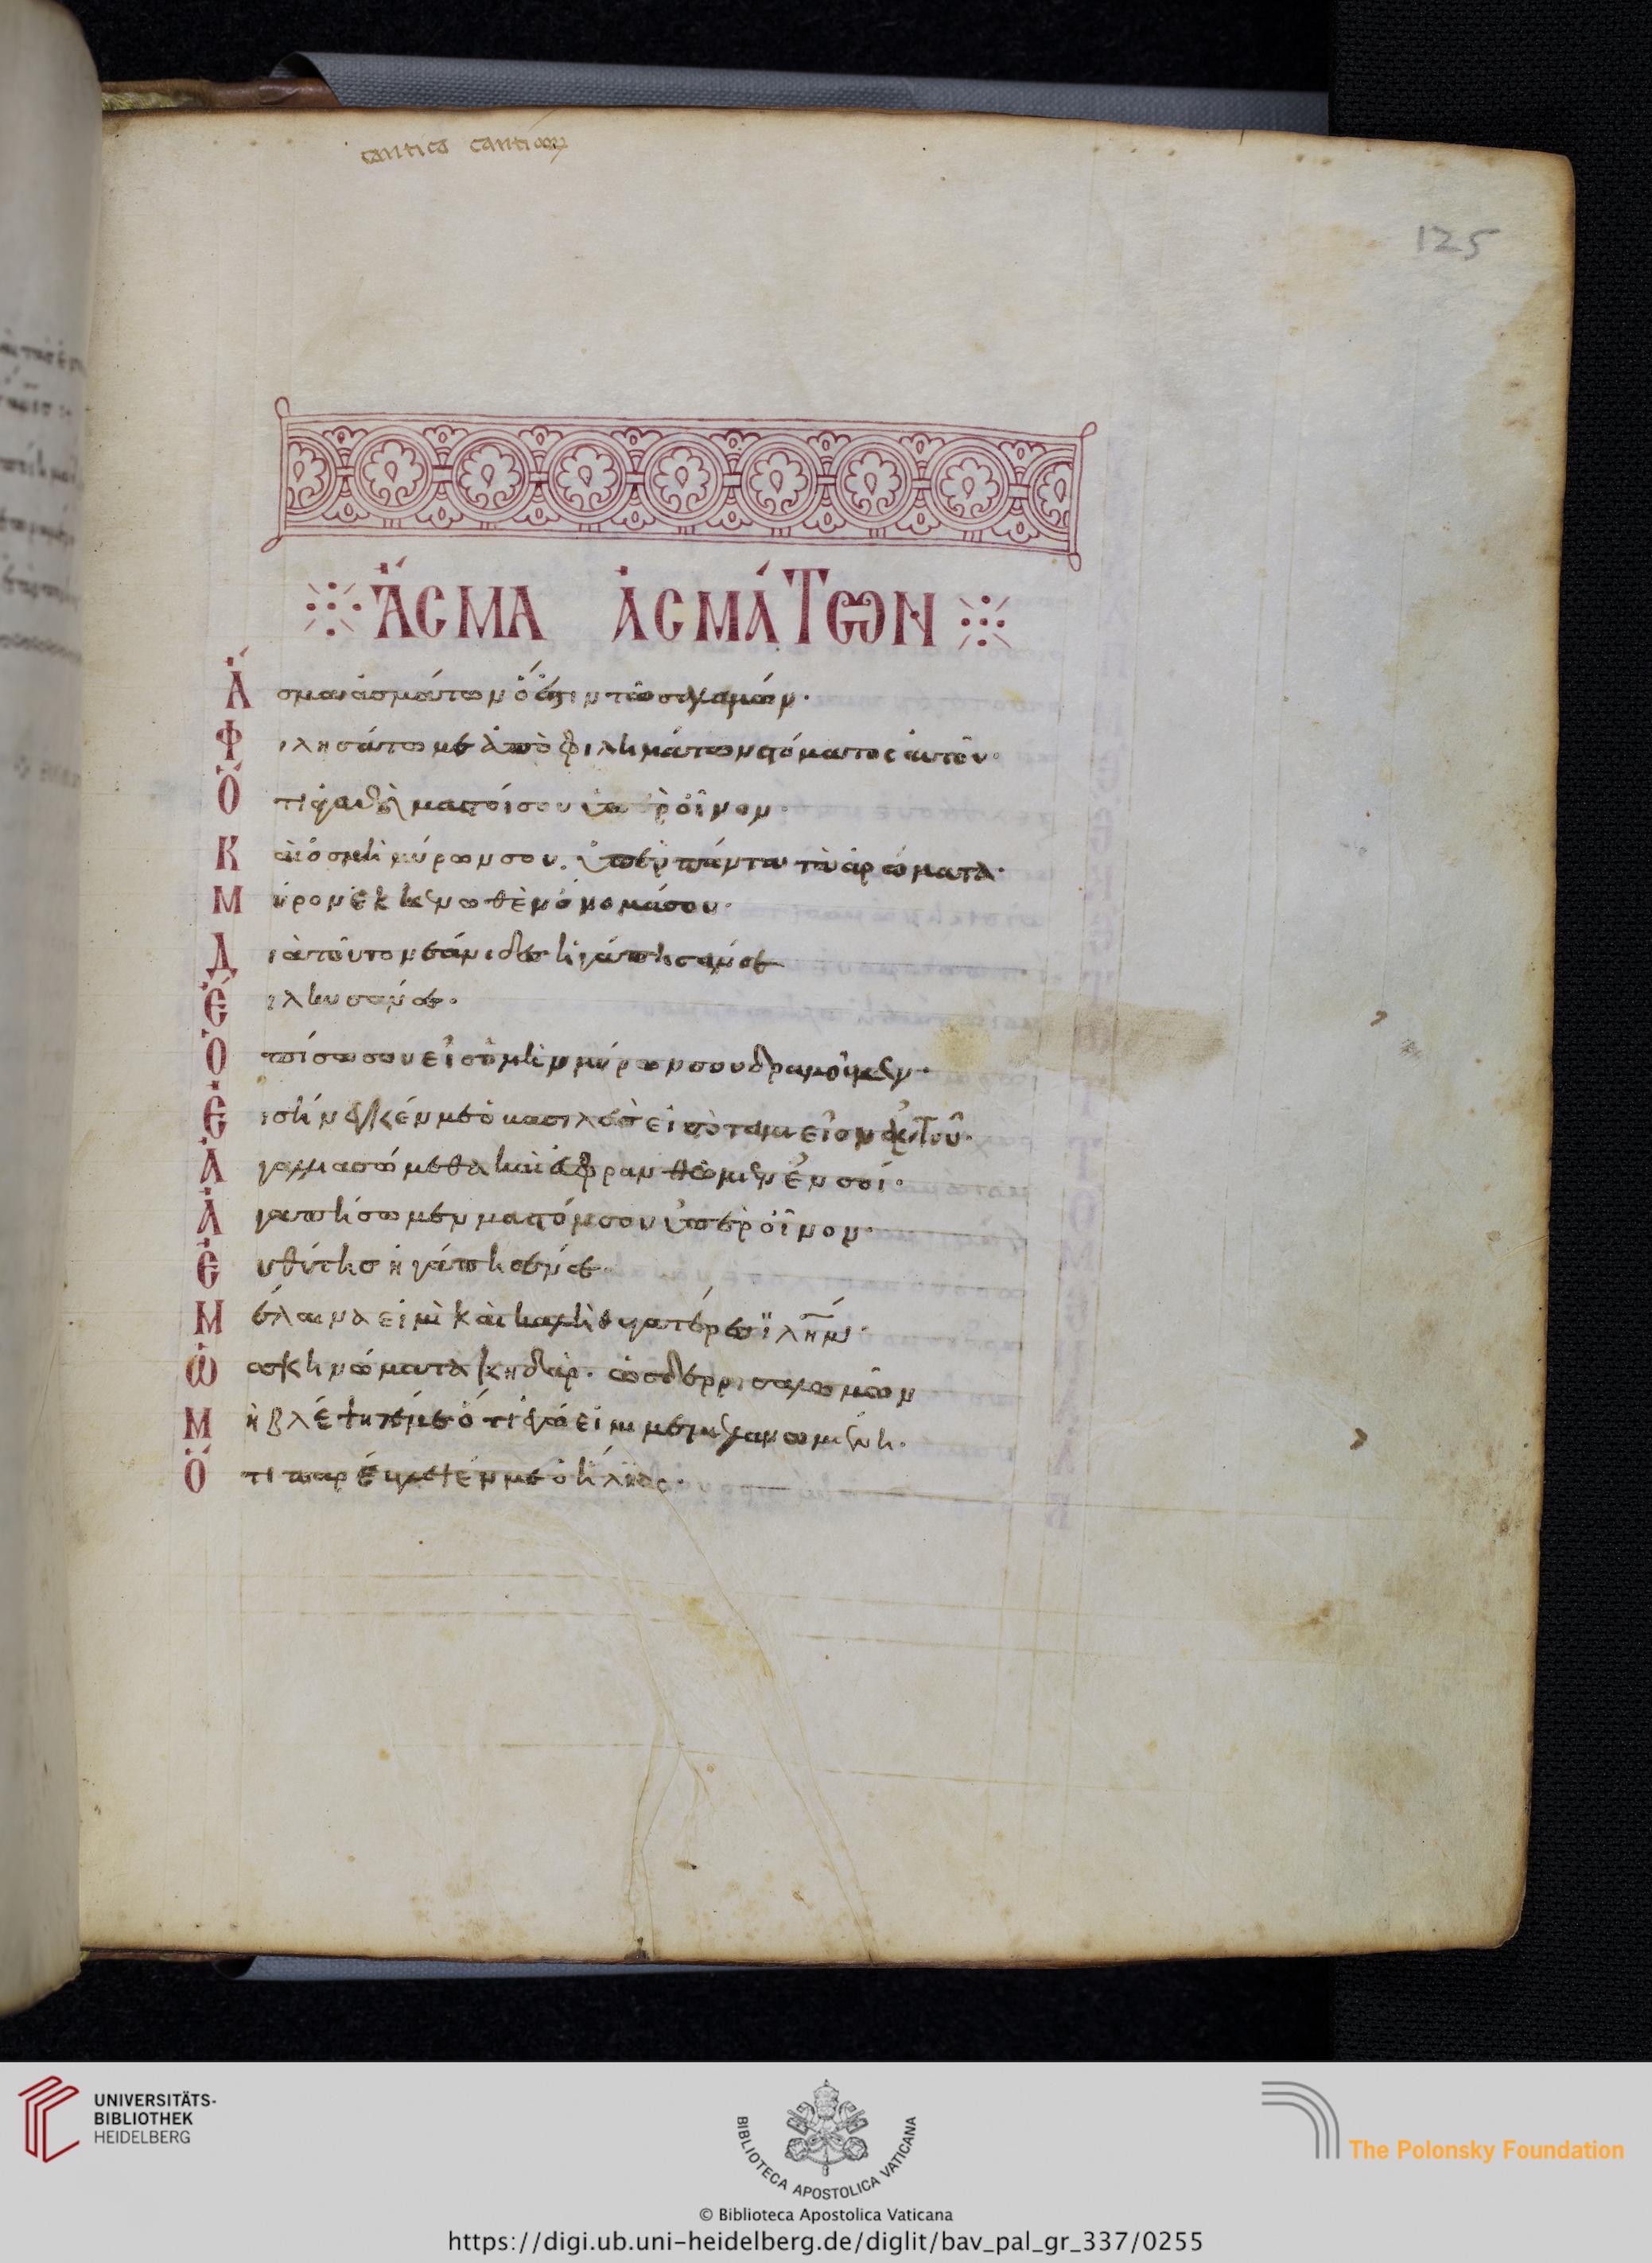 cantica canticorum
125
ἌΣΜΑ ἈΣΜΆΤΩΝ
Ἄσμα ἀσμάτων ὅ ἐστιν τῶ σαλαμών·
Φιλησάτω με ἀπὸ φιλημάτων στόματος αὐτοῦ·
Ὅτι ἀγαθοὶ μαστοί σου ὑπὲρ οἶνον·
Καὶ ὀσμὴ μύρων σου. ὑπὲρ πάντα τὰ ἀρώματα·
Μύρον ἐκκενωθὲν ὄνομά σου·
Διὰ τοῦτο νεάνιδες ἠγάπησάν σε
Εἵλκυσάν σε·
Ὀπίσω σου εἰς ὀσμὴν μύρων σου δραμοῦμεν·
Εἰσήνεγκέν με ὁ βασιλεὺς εἰς τὸ ταμιεῖον αὐτοῦ·
Ἀγαλλιασώμεθα καὶ εὐφρανθῶμεν ἐν σοί·
Ἀγαπήσωμεν μαστούς σου ὑπὲρ οἶνον·
Εὐθύτης ἠγάπησέν σε·
Μέλαινα εἰμὶ καὶ καλὴ θυγατέρες ϊλημ·
Ὡς σκηνώματα κηδάρ· ὡς δέρρις σαλωμῶν
Μὴ βλέψητέ με ὅτι ἐγώ εἰμι μεμελανωμένη·
Ὅτι παρέβλεψέν με ὁ ἥλιος·
UNIVERSITÄTS-
BIBLIOTHEK
HEIDELBERG
BIBLIOTECA APOSTOLICA VATICANA
The Polonsky Foundation
© Biblioteca Apostolica Vaticana
https://digi.ub.uni-heidelberg.de/diglit/bav_pal_gr_337/0255